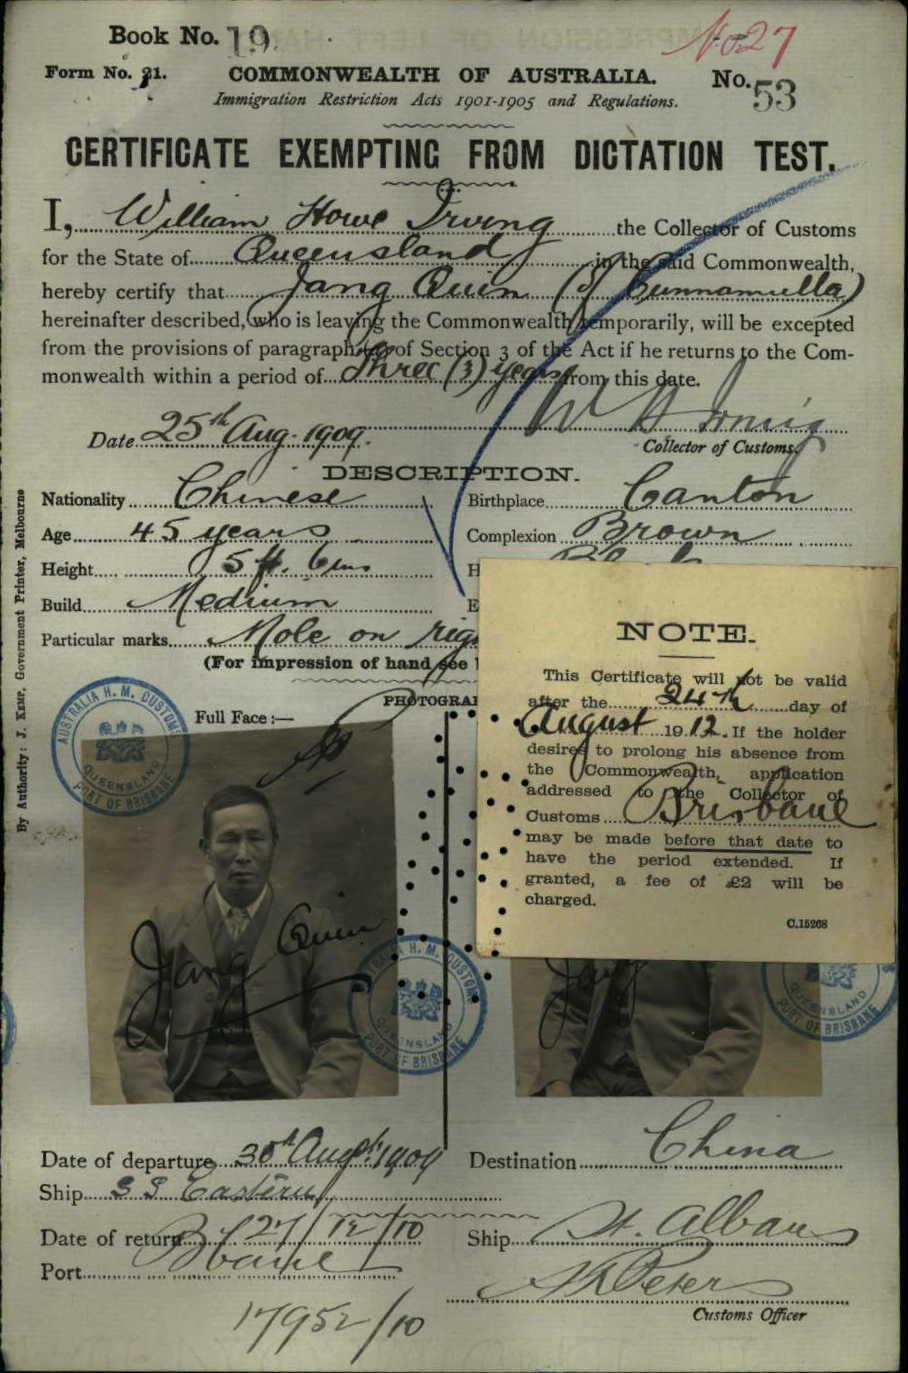 Book No. 19.
No 27
Form No. 21.
COMMONWEALTH OF AUSTRALIA.
No. 53
Immigration Restriction Acts 1901-1905 and Regulations.
CERTIFICATE EXEMPTING FROM DICTATION TEST.
I, William Howe Irving the Collector of Customs
for the State of Queensland in the said Commonwealth,
hereby certify that Jang Quin (of Cunnamulla)
hereinafter described, who is leaving the Commonwealth temporarily, will be excepted
from the provisions of paragraph (a) of Section 3 of the Act if he returns to the Com-
monwealth within a period of Three (3) years from this date.
Date 25th Aug. 1909.
W H Irving
Collector of Customs.
DESCRIPTION.
Nationality Chinese
Birthplace Canton
Age 45 years
Complexion Brown
Height 5 ft. 6 ins
H
Build Medium
E
Particular marks Mole on rig
(For impression of hand see b
PHOTOGRA
Full Face:—
AUSTRALIA H. M. CUSTOMS
QUEENSLAND
PORT OF BRISBANE
Jang Quin
NOTE.
This Certificate will not be valid
after the 24th day of
August 1912. If the holder
desires to prolong his absence from
the Commonwealth, application
addressed to the Collector of
Customs Brisbane
may be made before that date to
have the period extended. If
granted, a fee of £2 will be
charged.
C.15268
Jang
Date of departure 30th Augst. 1909
Destination China
Ship S S Eastern
Date of return 27/12/10
Ship St. Albans
Port Bbane
Customs Officer
17952/10
By Authority: J. Kemp, Government Printer, Melbourne